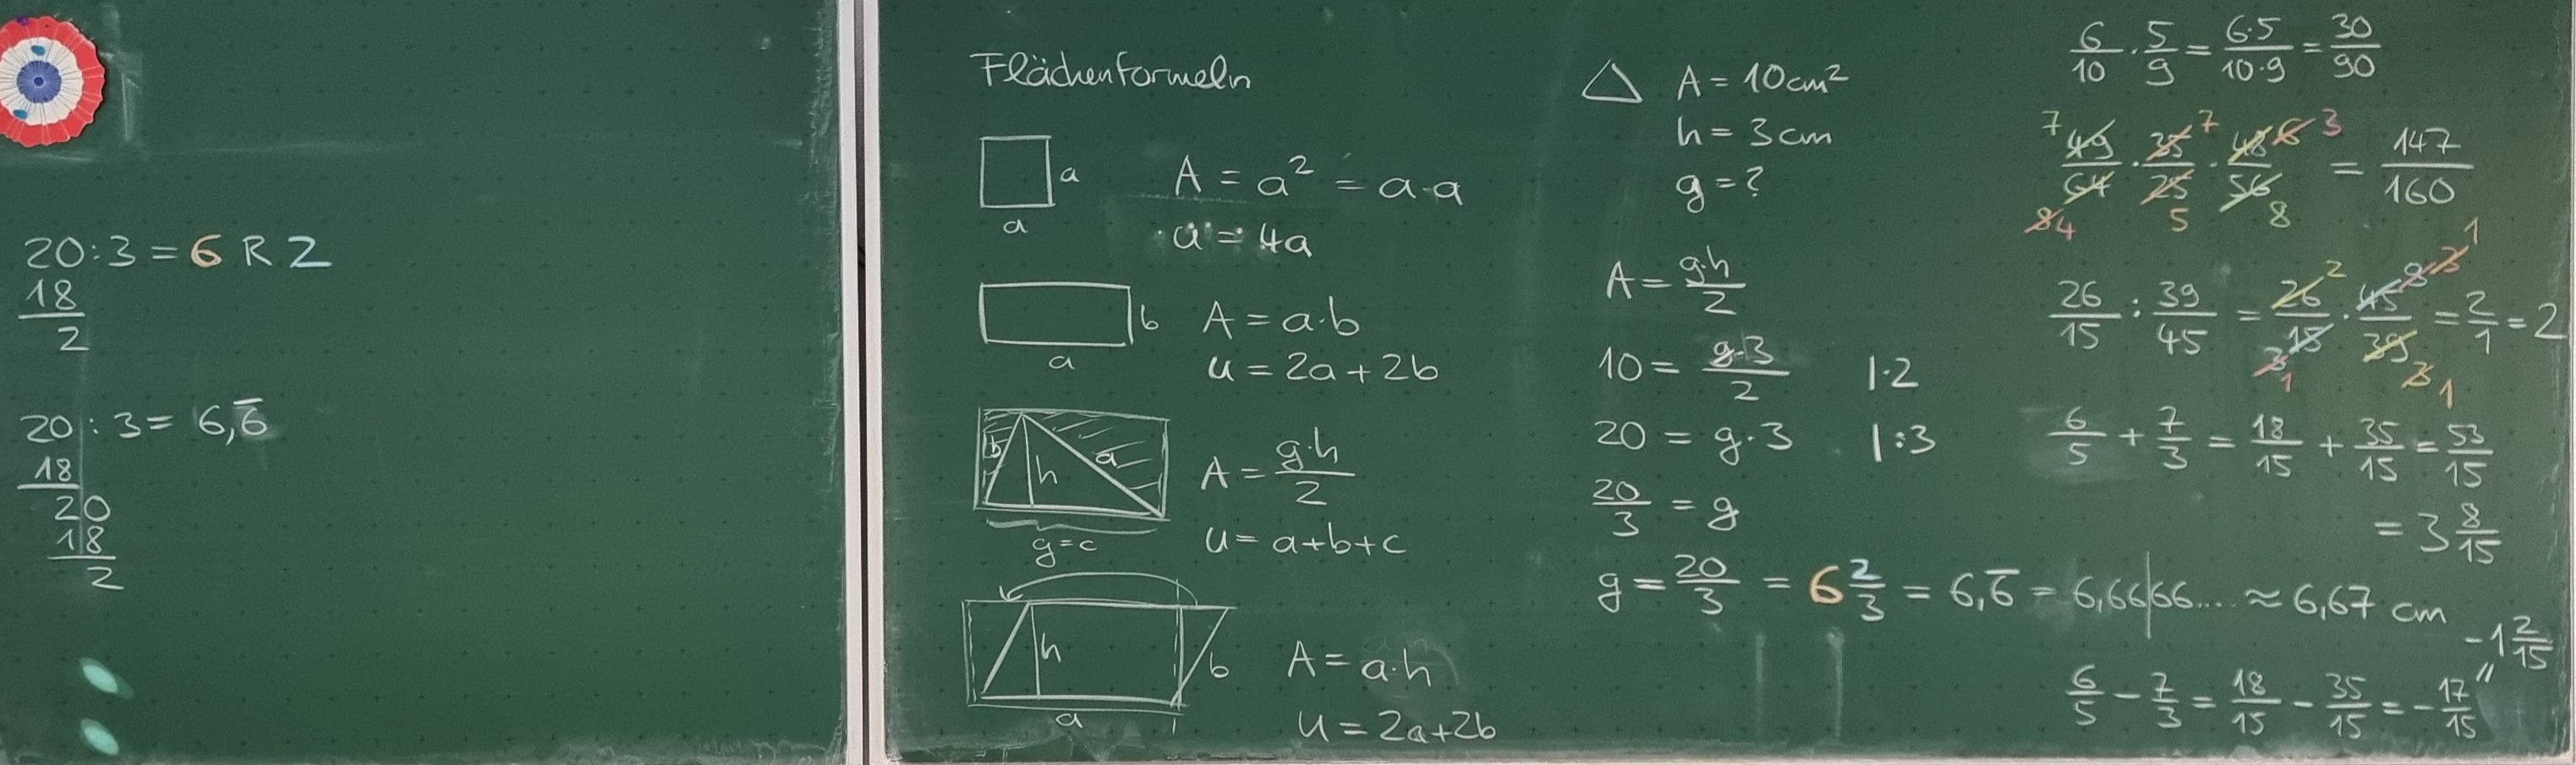 20 : 3 = 6 R 2
18
2
20 : 3 = 6,6̅
18
20
18
2
Flächenformeln
a
a
A = a² = a·a
u = 4a
b
a
A = a·b
u = 2a + 2b
b
h
a
g = c
A = g·h/2
u = a+b+c
h
b
a
A = a·h
u = 2a+2b
△ A = 10 cm²
h = 3 cm
g = ?
A = g·h/2
10 = g·3/2 |·2
20 = g·3 |:3
20/3 = g
g = 20/3 = 6 2/3 = 6,6̅ = 6,66|66.... ≈ 6,67 cm
6/10 · 5/9 = 6·5/10·9 = 30/90
7 7 3
49/64 · 35/25 · 48/56 6 = 147/160
84 5 8
2 9 3 1
26/15 : 39/45 = 26/15 · 45/39 = 2/1 = 2
3 1 3 1
6/5 + 7/3 = 18/15 + 35/15 = 53/15
= 3 8/15
-1 2/15
"
6/5 - 7/3 = 18/15 - 35/15 = -17/15